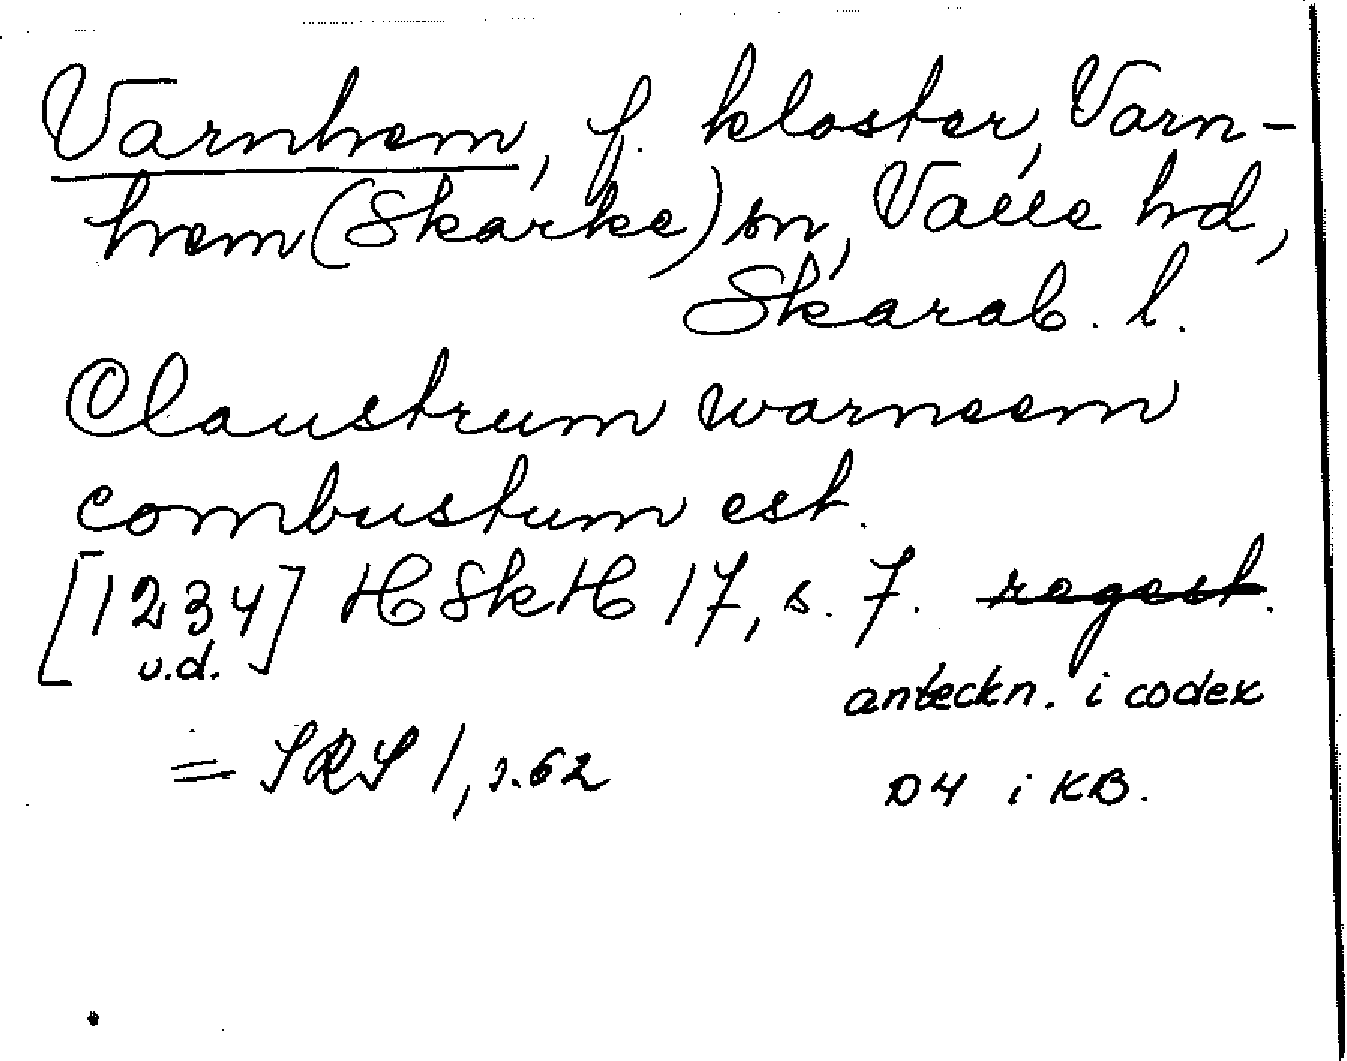 Varnhem, f. kloster, Varn-
hem (Skarke) sn, Valle hd,
Skarab. l.
Claustrum warneem
combustum est.
[1234] HSkH 17, s. 7. regest.
u.d.
anteckn. i codex
= SRS 1, s. 62
D4 i KB.